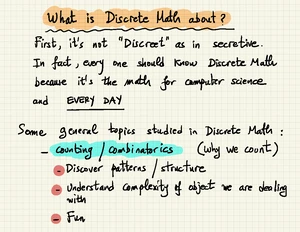 What is Discrete Math about?
First, it's not "Discreet" as in secretive.
In fact, every one should know Discrete Math
because it's the math for computer science
and EVERY DAY
Some general topics studied in Discrete Math:
- counting / combinatorics (Why we count)
- Discover patterns / structure
- Understand complexity of object we are dealing
with
- Fun